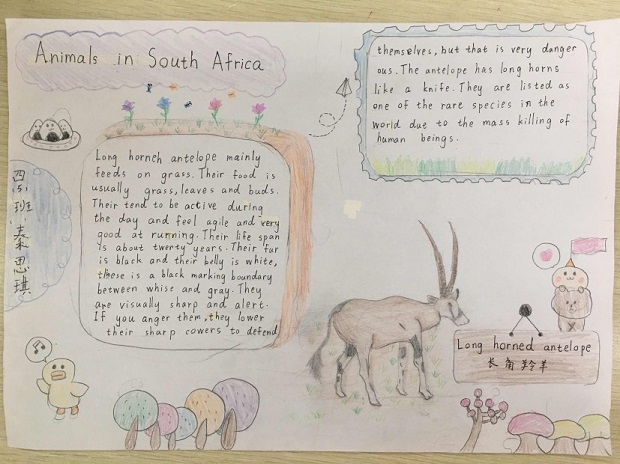 Animals in South Africa
四(5)班 秦思琪
Long horneh antelope mainly
feeds on grass. Their food is
usually grass, leaves and buds.
Their tend to be active during
the day and feel agile and very
good at running. Their life span
is about twenty years. Their fur
is black and their belly is white,
these is a black marking boundary
between whise and gray. They
are visually sharp and alert.
If you anger them, they lower
their sharp cowers to defend
themselves, but that is very danger
ous. The antelope has long horns
like a knife. They are listed as
one of the rare species in the
world due to the mass killing of
human beings.
Long horned antelope
长角羚羊